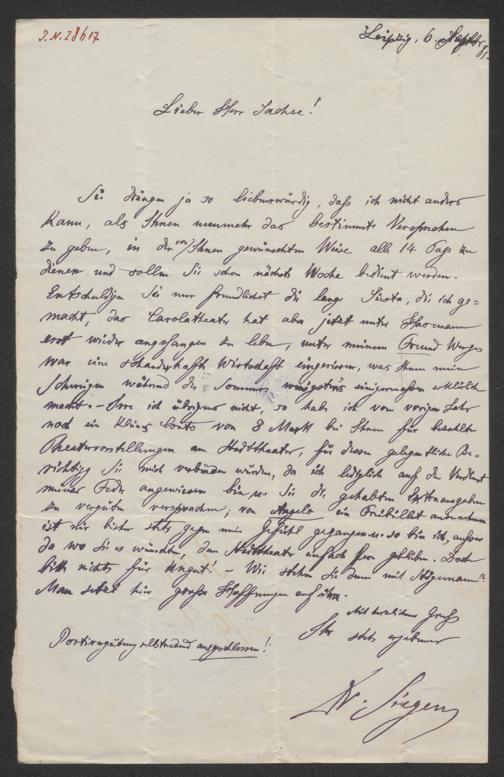 I.N. 28617
Leipzig, 6. Septbr 81.
Lieber Herr Sachse!
Sie drängen ja so liebenswürdig, daß ich nicht anders
kann, als Ihnen nunmehr das bestimmte Versprechen
zu geben, in der von Ihnen gewünschten Weise alle 14 Tage zu
dienen und sollen Sie schon nächste Woche bedient werden.
Entschuldigen Sie nur freundlichst die lange Siesta, die ich ge-
macht, das Carolatheater hat aber jetzt unter Hasemann
erst wieder angefangen zu leben, unter meinem Freund
war eine schauderhafte Wirtschaft eingerissen, was Ihnen mein
Schweigen während des Sommers wenigstens einigermaßen erklärlich
macht. – Irre ich übrigens nicht, so habe ich vom vorigen Jahr
noch ein kleines Conto von 8 Mark bei Ihnen für bezahlte
Theatervorstellungen am Stadttheater, für deren gelegentliche Be-
richtigung Sie mich verbinden würden, da ich lediglich auf den Verdienst
meiner Feder angewiesen bin u. Sie die gehabten Extraausgaben
zu vergüten versprachen; von Angelo ein Freibillet anzunehmen
ist mir bisher stets gegen mein Gefühl gegangen u. so bin ich, außer
da wo Sie es wünschten, dem Stadttheater einfach fern geblieben. Doch
bitte nichts für ungut! – Wie stehen Sie denn mit
Man setzt hier große Hoffnungen auf ihn.
Mit herzlichem Gruß
Ihr stets ergebener
Portovergütung selbstredend ausgeschlossen!
Siegen